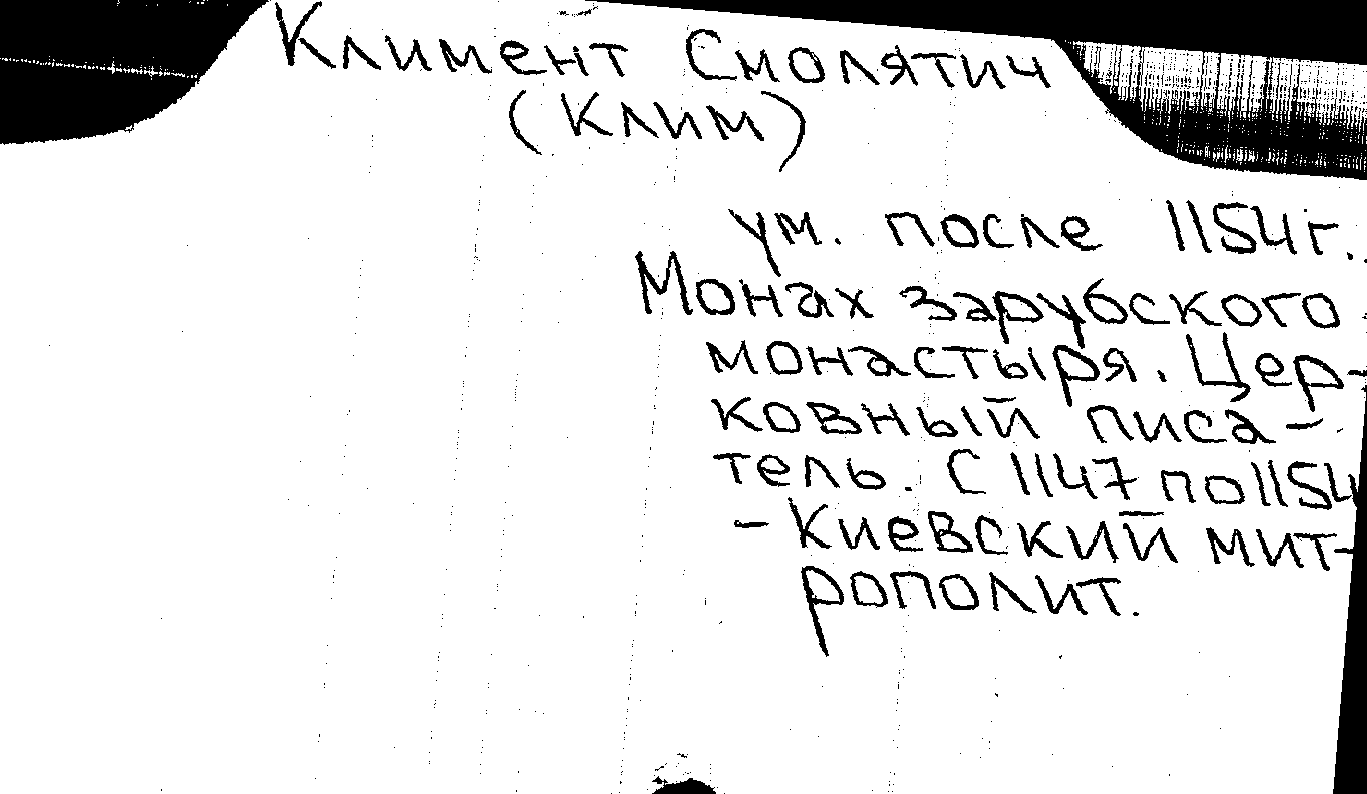 Климент Смолятич
(Клим)
ум. после 1154г.
Монах зарубского
монастыря. Цер-
ковный писа-
тель. С 1147 по 1154
- Киевский мит-
рополит.